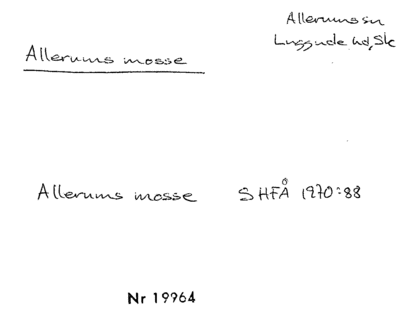 Allerums sn
Luggude hd, Sk
Allerums mosse
Allerums mosse SHFÅ 1970:88
Nr 19964